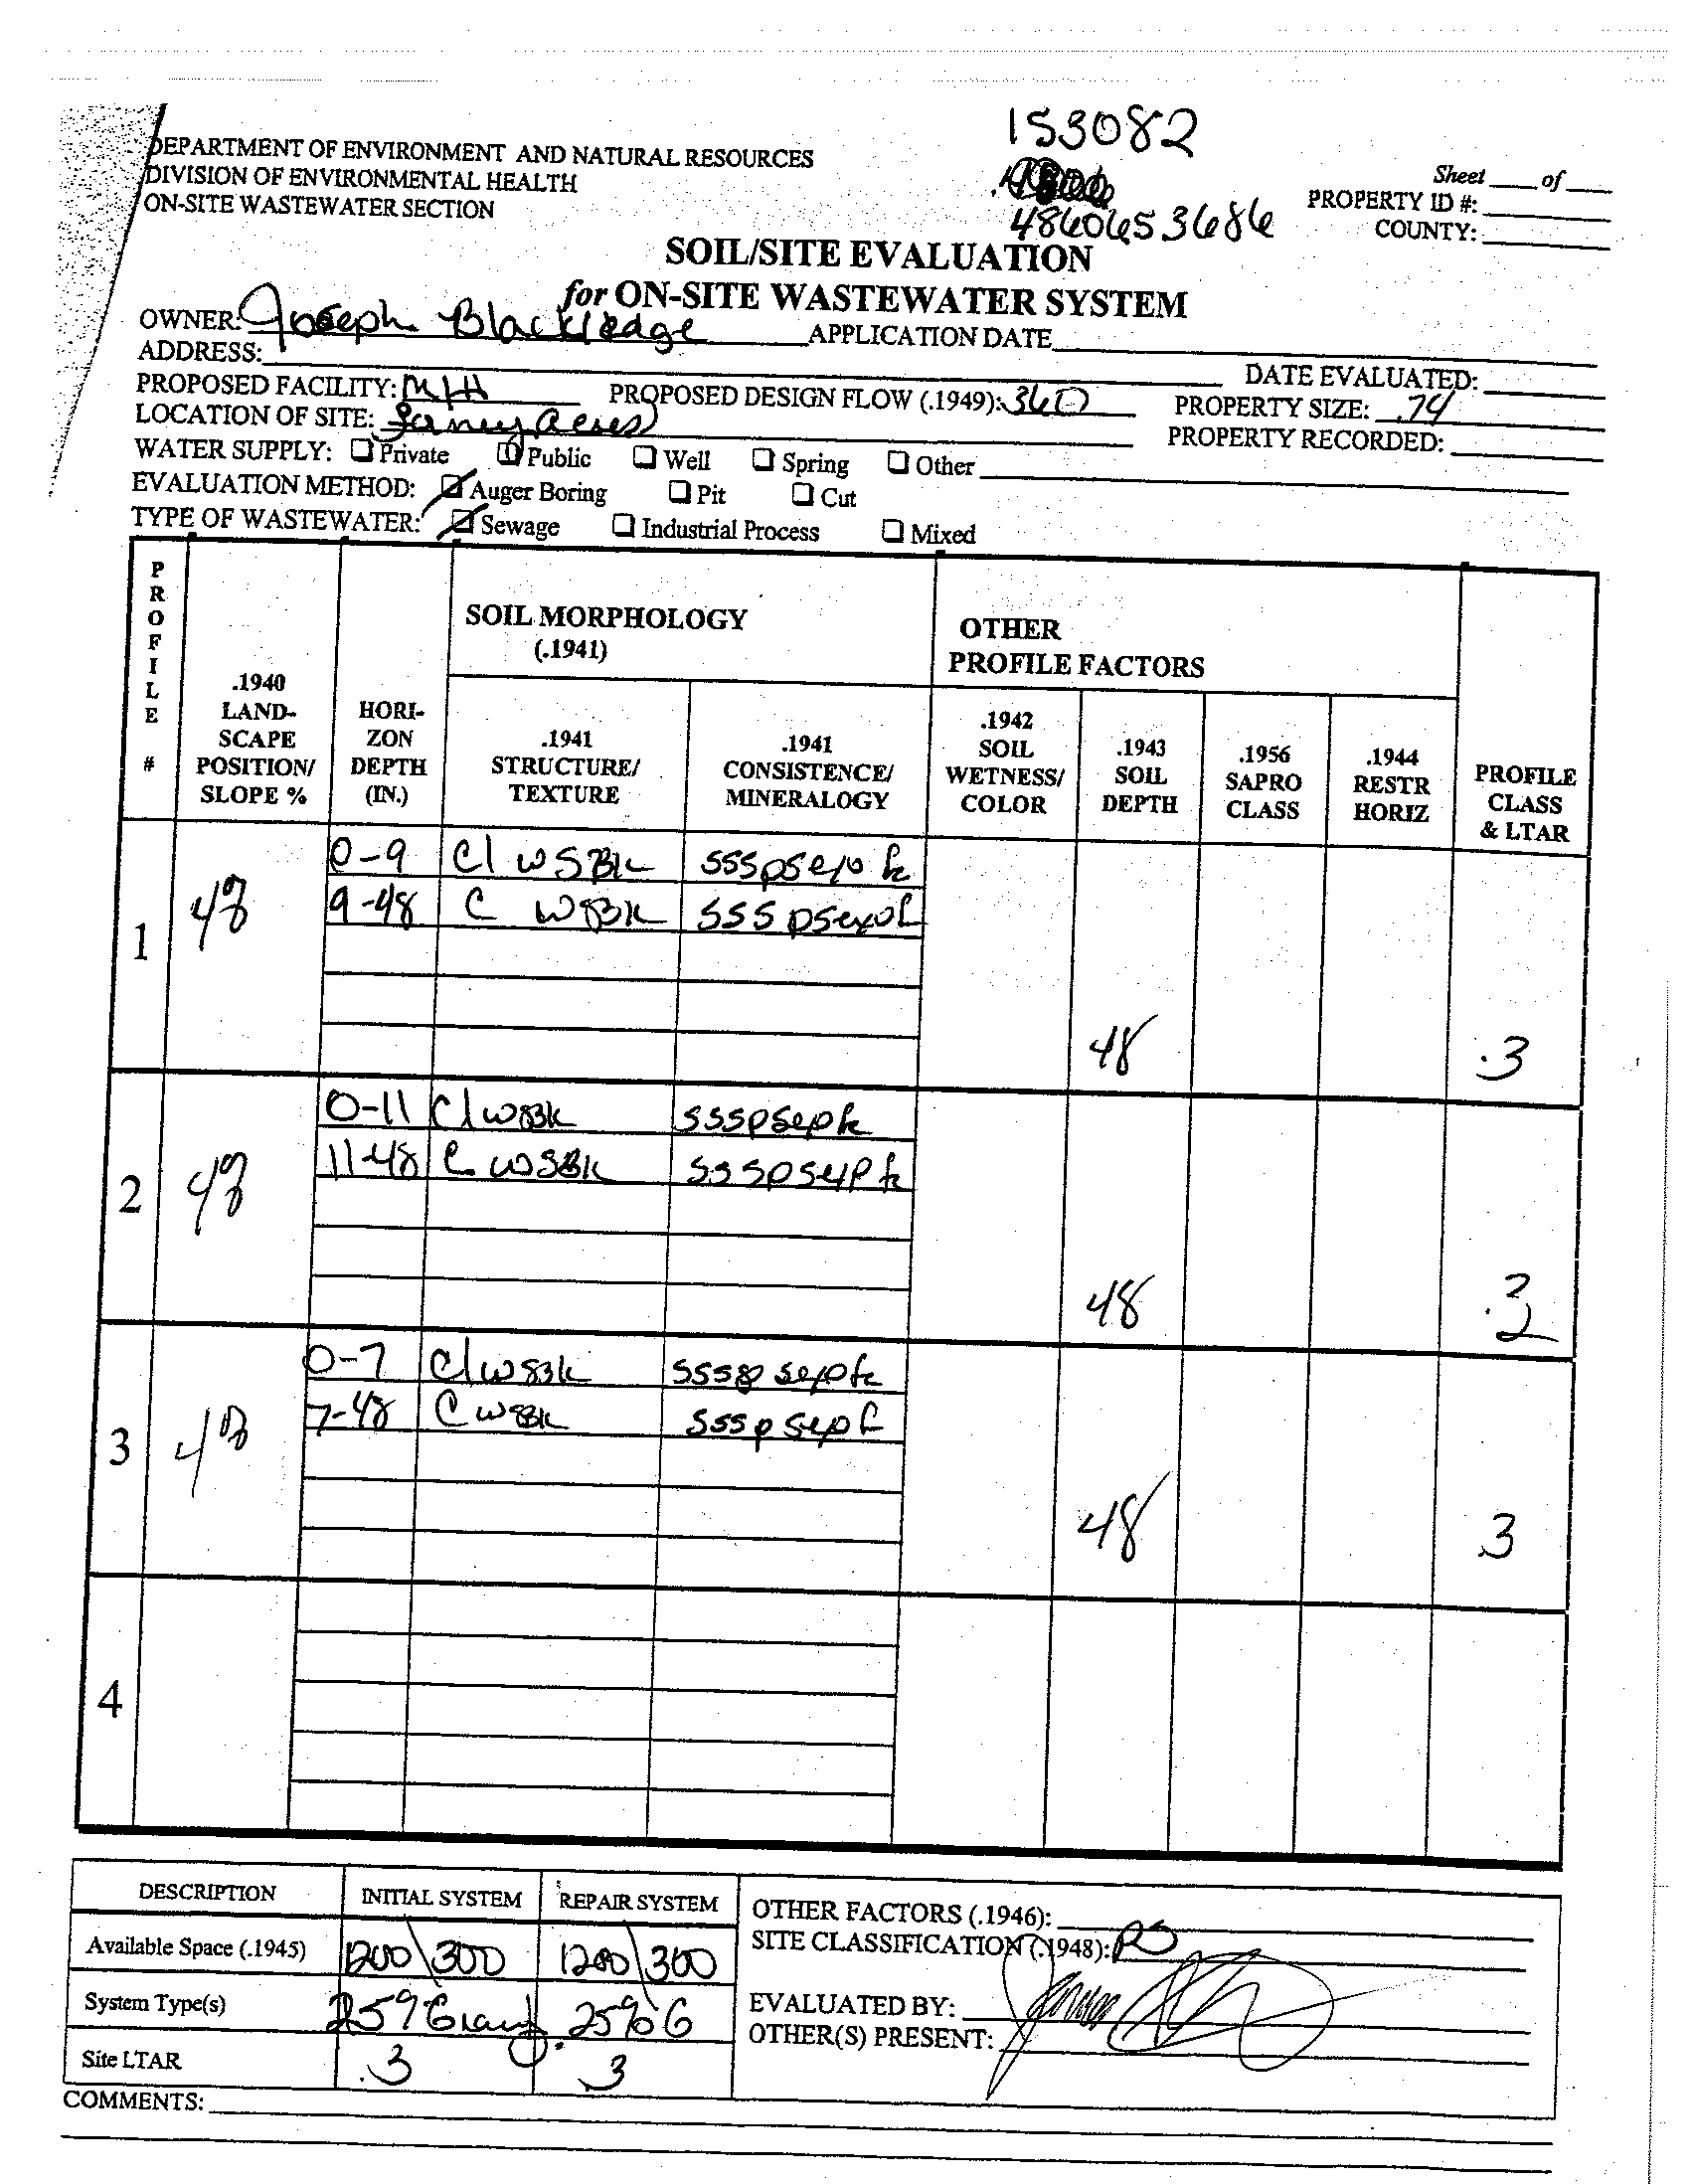 153082
DEPARTMENT OF ENVIRONMENT AND NATURAL RESOURCES
DIVISION OF ENVIRONMENTAL HEALTH
ON-SITE WASTEWATER SECTION
Sheet ___ of ___
PROPERTY ID #:
COUNTY:
4860653686
SOIL/SITE EVALUATION
for ON-SITE WASTEWATER SYSTEM
OWNER: Joseph Blackledge APPLICATION DATE
ADDRESS: DATE EVALUATED:
PROPOSED FACILITY: MH PROPOSED DESIGN FLOW (.1949): 360 PROPERTY SIZE: .74
LOCATION OF SITE: Acres PROPERTY RECORDED:
WATER SUPPLY: ☐ Private ☐ Public ☐ Well ☐ Spring ☐ Other
EVALUATION METHOD: ☑ Auger Boring ☐ Pit ☐ Cut
TYPE OF WASTEWATER: ☑ Sewage ☐ Industrial Process ☐ Mixed
PROFILE #
.1940 LAND-SCAPE POSITION/ SLOPE %
HORI-ZON DEPTH (IN.)
SOIL MORPHOLOGY (.1941)
.1941 STRUCTURE/ TEXTURE
.1941 CONSISTENCE/ MINERALOGY
OTHER PROFILE FACTORS
.1942 SOIL WETNESS/ COLOR
.1943 SOIL DEPTH
.1956 SAPRO CLASS
.1944 RESTR HORIZ
PROFILE CLASS & LTAR
1
0-9 Cl WSBK
9-48 C WSBK
48 .3
2
0-11 Cl WSBK
11-48 C WSBK
48 .3
3
0-7 Cl WSBK
7-48 C WSBK
48 .3
4
DESCRIPTION INITIAL SYSTEM REPAIR SYSTEM
Available Space (.1945) 1200\300 1200\300
System Type(s) 25% 25% G
Site LTAR .3 .3
OTHER FACTORS (.1946):
SITE CLASSIFICATION (.1948): PS
EVALUATED BY:
OTHER(S) PRESENT:
COMMENTS: